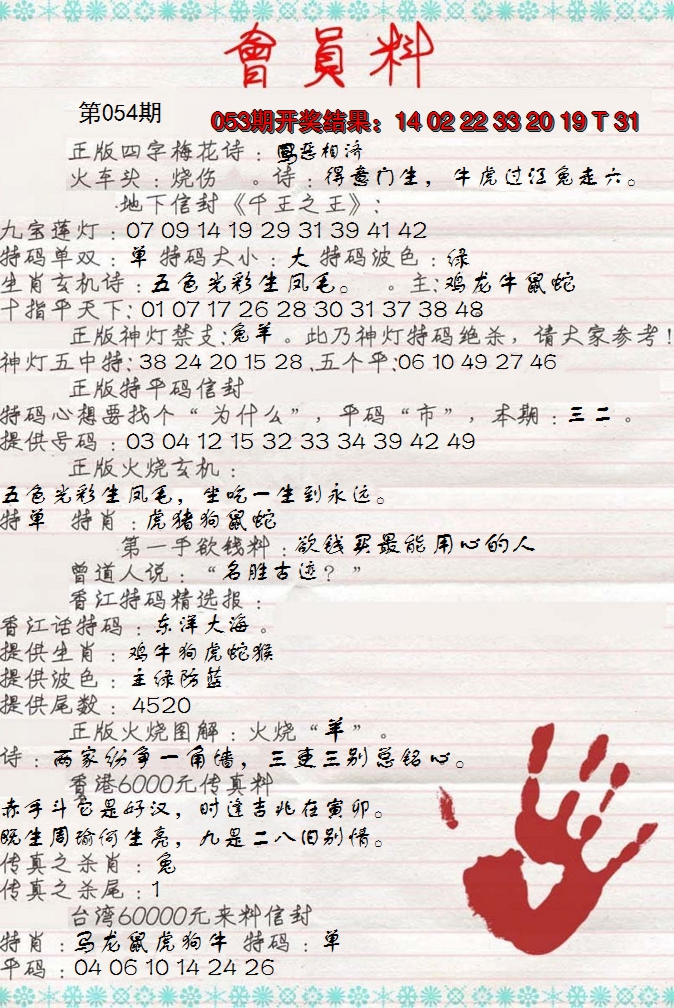 會員料
第054期
053期开奖结果：14 02 22 33 20 19 T 31
正版四字梅花诗：凤恶相济
火车头：烧伤 。诗：得意门生，牛虎过江兔走六。
地下信封《千王之王》：
九宝莲灯：07 09 14 19 29 31 39 41 42
特码单双：单 特码大小：大 特码波色：绿
生肖玄机诗：五色光彩生凤毛。 。主：鸡龙牛鼠蛇
十指平天下：01 07 17 26 28 30 31 37 38 48
正版神灯禁支：兔羊。此乃神灯特码绝杀，请大家参考！
神灯五中特：38 24 20 15 28 .五个平：06 10 49 27 46
正版特平码信封
特码心想要找个“为什么”，平码“市”，本期：三二。
提供号码：03 04 12 15 32 33 34 39 42 49
正版火烧玄机：
五色光彩生凤毛，坐吃一生到永远。
特单 特肖：虎猪狗鼠蛇
第一手欲钱料：欲钱买最能用心的人
曾道人说：“名胜古迹？”
香江特码精选报：
香江话特码：东洋大海。
提供生肖：鸡牛狗虎蛇猴
提供波色：主绿防蓝
提供尾数：4520
正版火烧图解：火烧“羊”。
诗：两家纷争一角墙，三更三别总铭心。
香港6000元传真料
赤手斗它是好汉，时逢吉兆在寅卯。
既生周瑜何生亮，九是二八旧别情。
传真之杀肖：兔
传真之杀尾：1
台湾60000元来料信封
特肖：马龙鼠虎狗牛 特码：单
平码：04 06 10 14 24 26